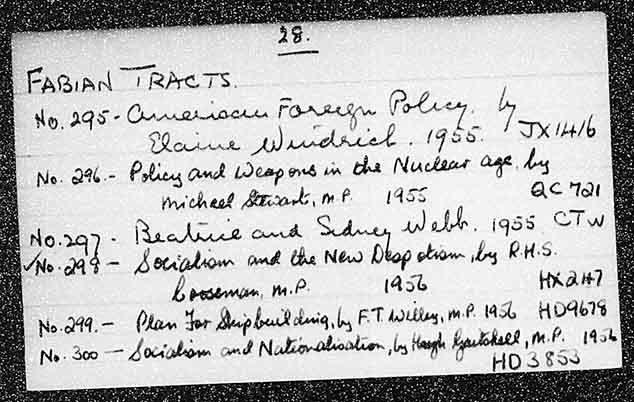 28.
FABIAN TRACTS.
No. 295 - American Foreign Policy. by
Elaine Windrich. 1955. JX1416
No. 296. - Policy and Weapons in the Nuclear age. by
Michael Stewart, M.P. 1955 QC721
No. 297 - Beatrice and Sidney Webb. 1955 CTW
✓No. 298 - Socialism and the New Despotism, by R.H.S.
Crossman, M.P. 1956 HX247
No. 299. - Plan For Shipbuilding, by F.T. Willey, M.P. 1956 HD9678
No. 300 - Socialism and Nationalisation, by Hugh Gaitskell, M.P. 1956
HD3853